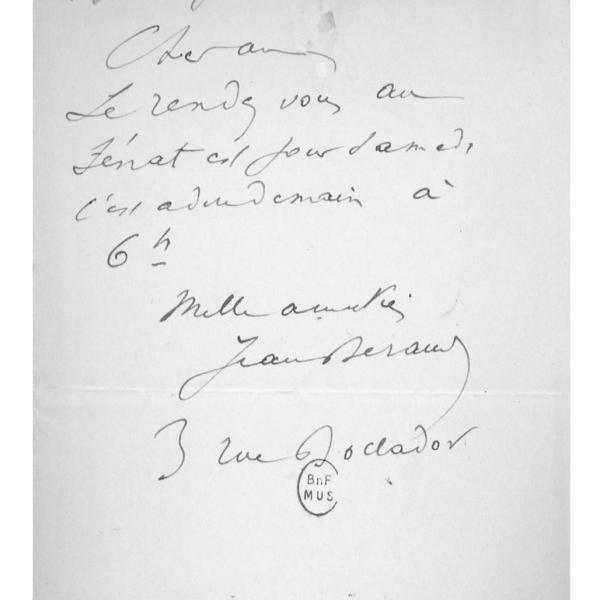 Cher ami
Le rendez vous au
Sénat est pour Samedi
c'est à dire demain à
6 h
Mille amitiés
Jean Béraud
3 rue Boccador
BnF
MUS